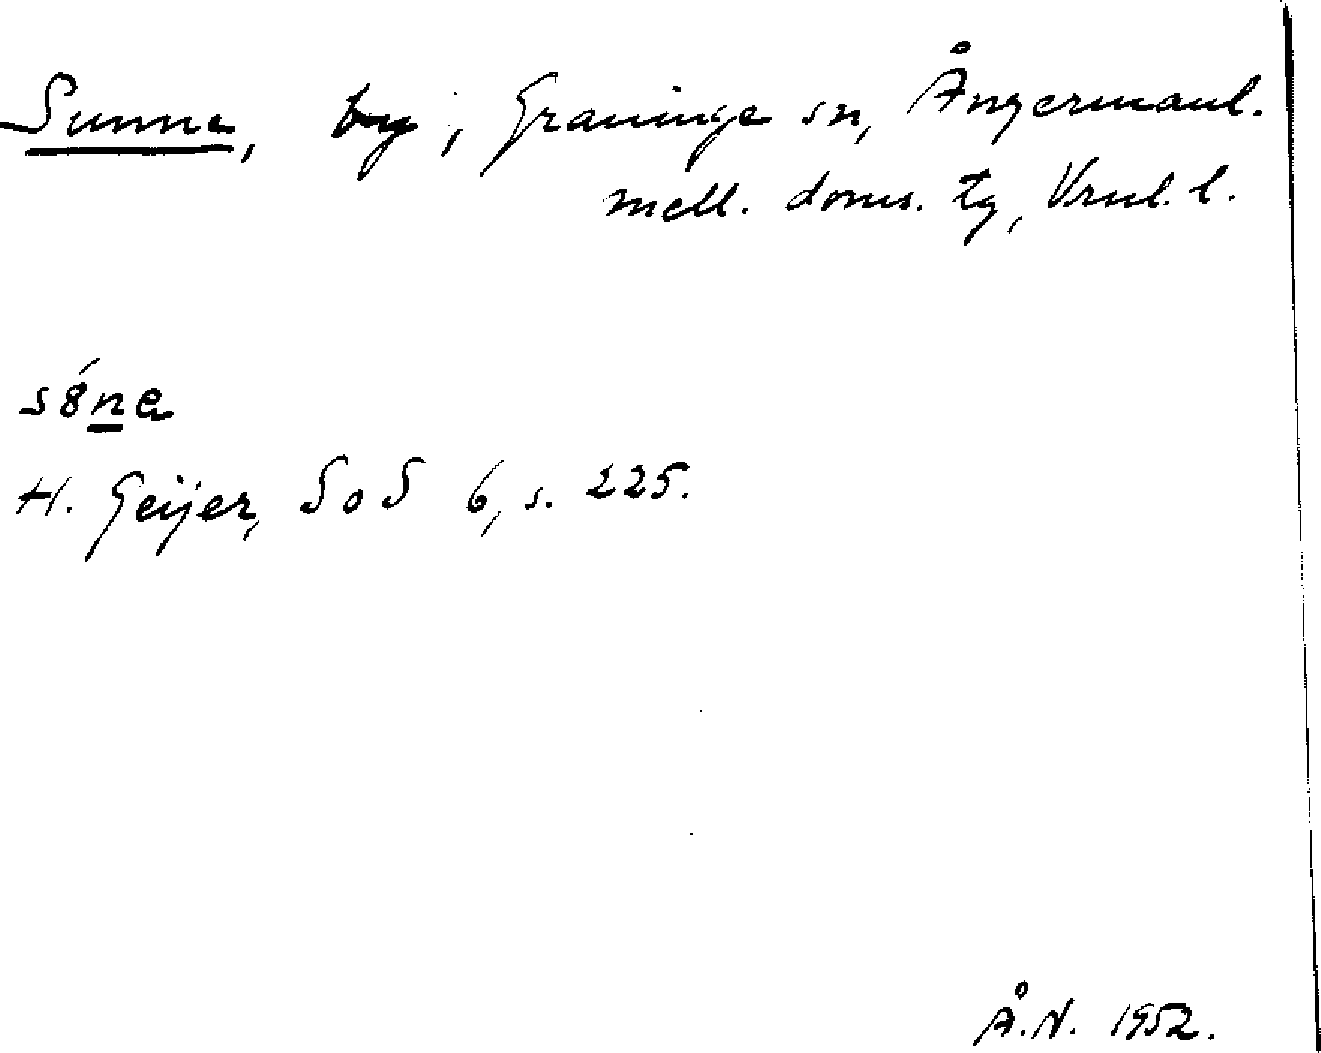 Sunne, by, Graninge sn, Ångermanl.
mell. doms. tg, Vrnl. l.
sǿne
H. Geijer, SoS 6, s. 225.
Å.N. 1952.